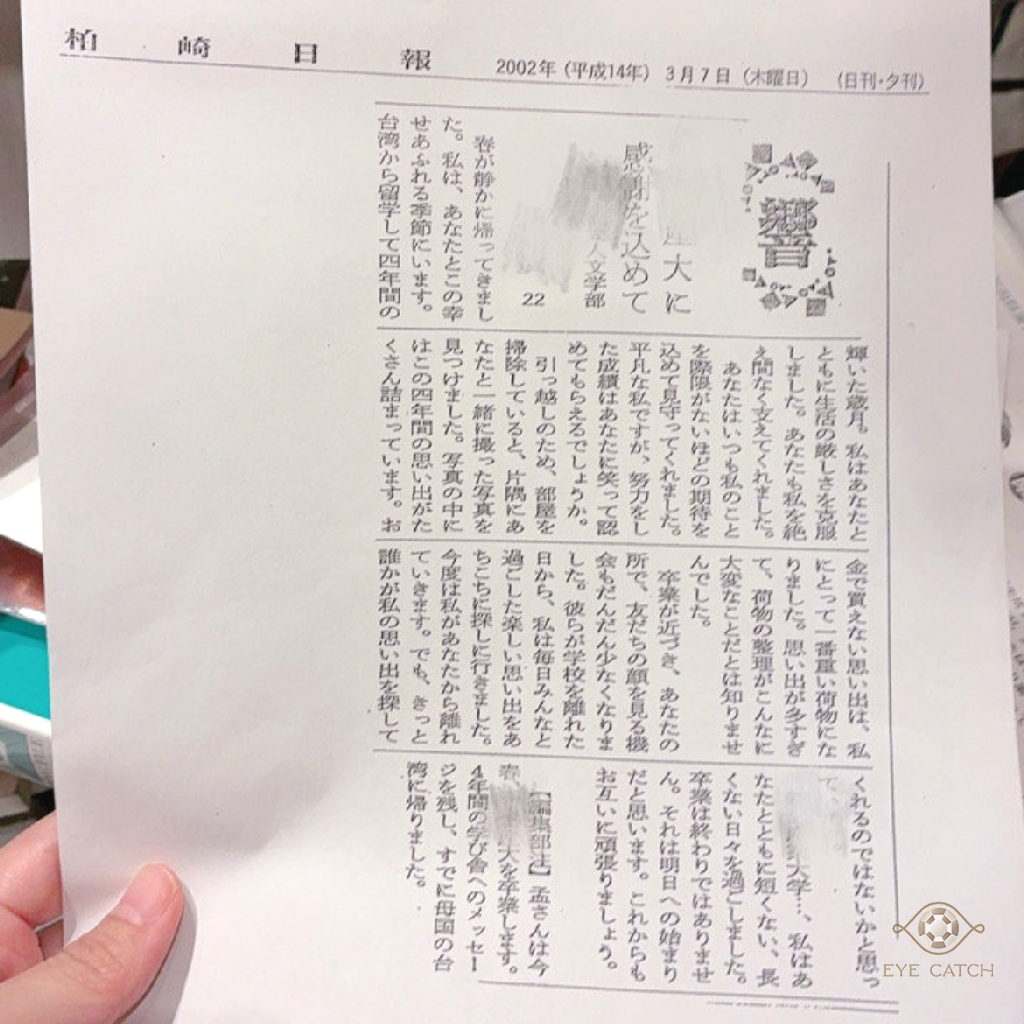 柏崎日報
2002年（平成14年） 3月7日（木曜日） （日刊・夕刊）
響
産大に
感謝を込めて
人文学部
22
春が静かに帰ってきまし
た。私は、あなたとこの幸
せあふれる季節にいます。
台湾から留学して四年間の
輝いた歳月。私はあなたと
ともに生活の厳しさを克服
しました。あなたも私を絶
え間なく支えてくれました。
あなたはいつも私のこと
を際限がないほどの期待を
込めて見守ってくれました。
平凡な私ですが、努力をし
た成績はあなたに笑って認
めてもらえるでしょうか。
引っ越しのため、部屋を
掃除していると、片隅にあ
なたと一緒に撮った写真を
見つけました。写真の中に
はこの四年間の思い出がた
くさん詰まっています。お
金で買えない思い出は、私
にとって一番重い荷物にな
りました。思い出が多すぎ
て、荷物の整理がこんなに
大変なことだとは知りませ
んでした。
卒業が近づき、あなたの
所で、友だちの顔を見る機
会もだんだん少なくなりま
した。彼らが学校を離れた
日から、私は毎日みんなと
過ごした楽しい思い出をあ
ちこちに探しに行きました。
今度は私があなたから離れ
ていきます。でも、きっと
誰かが私の思い出を探して
くれるのではないかと思っ
て、
大学…、私はあ
なたとともに短くない、長
くない日々を過ごしました。
卒業は終わりではありませ
ん。それは明日への始まり
だと思います。これからも
お互いに頑張りましょう。
【編集部注】孟さんは今
春、大を卒業します。
4年間の学び舎へのメッセー
ジを残し、すでに母国の台
湾に帰りました。
EYE CATCH